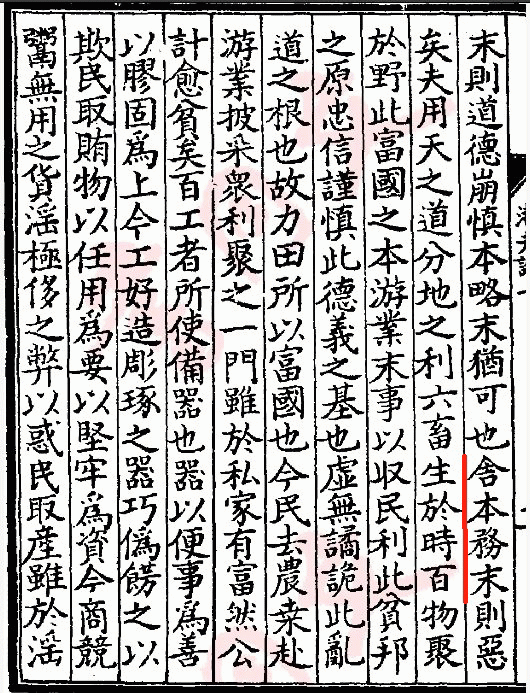 末則道德崩慎本略末猶可也舍本務末則惡
矣夫用天之道分地之利六畜生於時百物聚
於野此富國之本游業末事以収民利此貧邦
之原忠信謹慎此德義之基也虛無譎詭此亂
道之根也故力田所以富國也今民去農桒赴
游業披采衆利聚之一門雖於私家有富然公
計愈貧矣百工者所使備器也器以便事爲善
以膠固爲上今工好造彫琢之器巧僞餝之以
欺民取賄物以任用爲要以堅牢爲資今商競
鬻無用之貨滛極侈之弊以惑民取産雖於滛